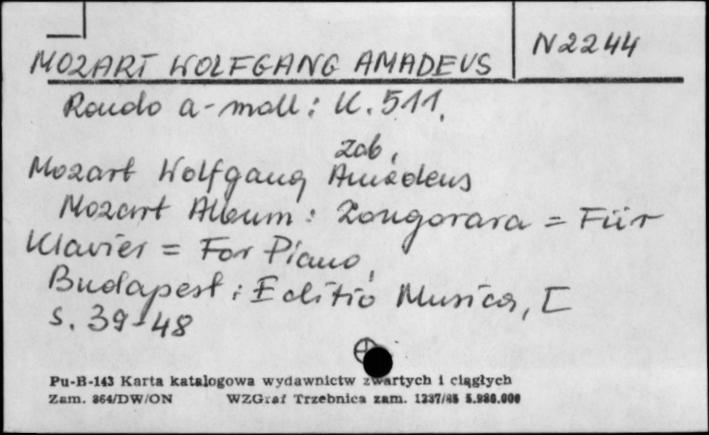 N2244
MOZART WOLFGANG AMADEUS
Rondo a-moll: K. 511.
Zob.
Mozart Wolfgang Amadeus
Mozart Album: Zongorara = Für
Klavier = For Piano,
Budapest: Editio Musica, [
s. 39-48
Pu-B-143 Karta katalogowa wydawnictw zwartych i ciągłych
Zam. 864/DW/ON WZGraf Trzebnica zam. 1237/85 5.980.000